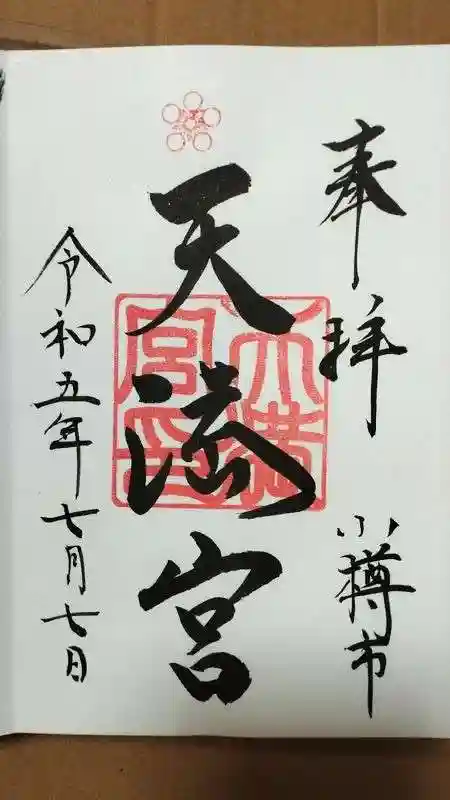 奉拝
小樽市
天満宮
天満宮印
令和五年七月七日